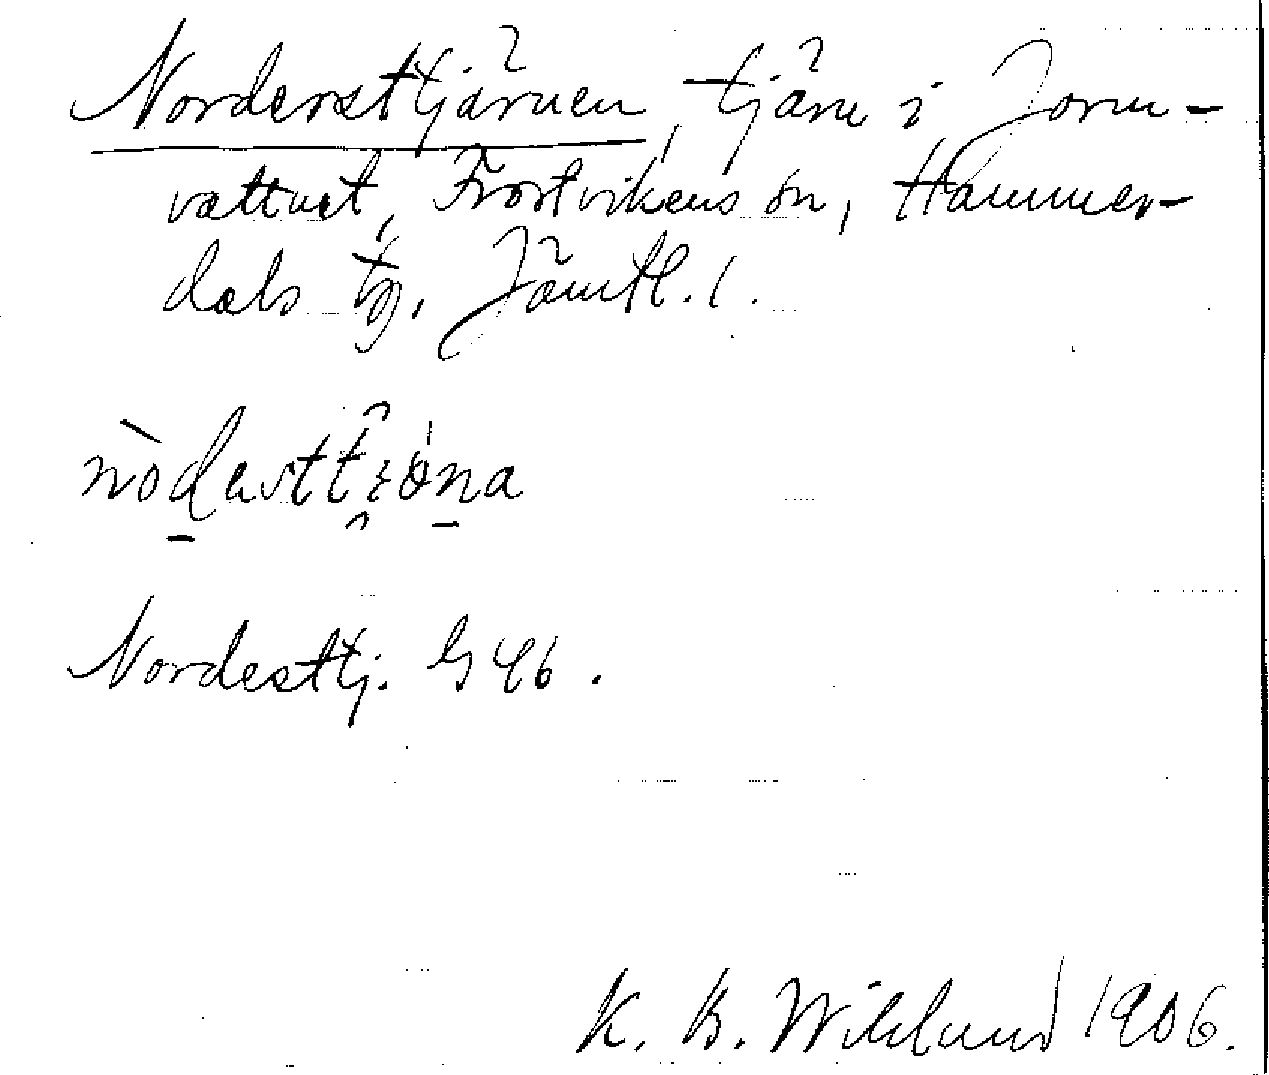 Norderst tjärnen, tjärn i Jorm-
vattnet, Frostvikens sn, Hammer-
dals tg. Jämtl. l.
nòdasttȥöna
Nordesttj. G 46.
K. B. Wiklund 1906.